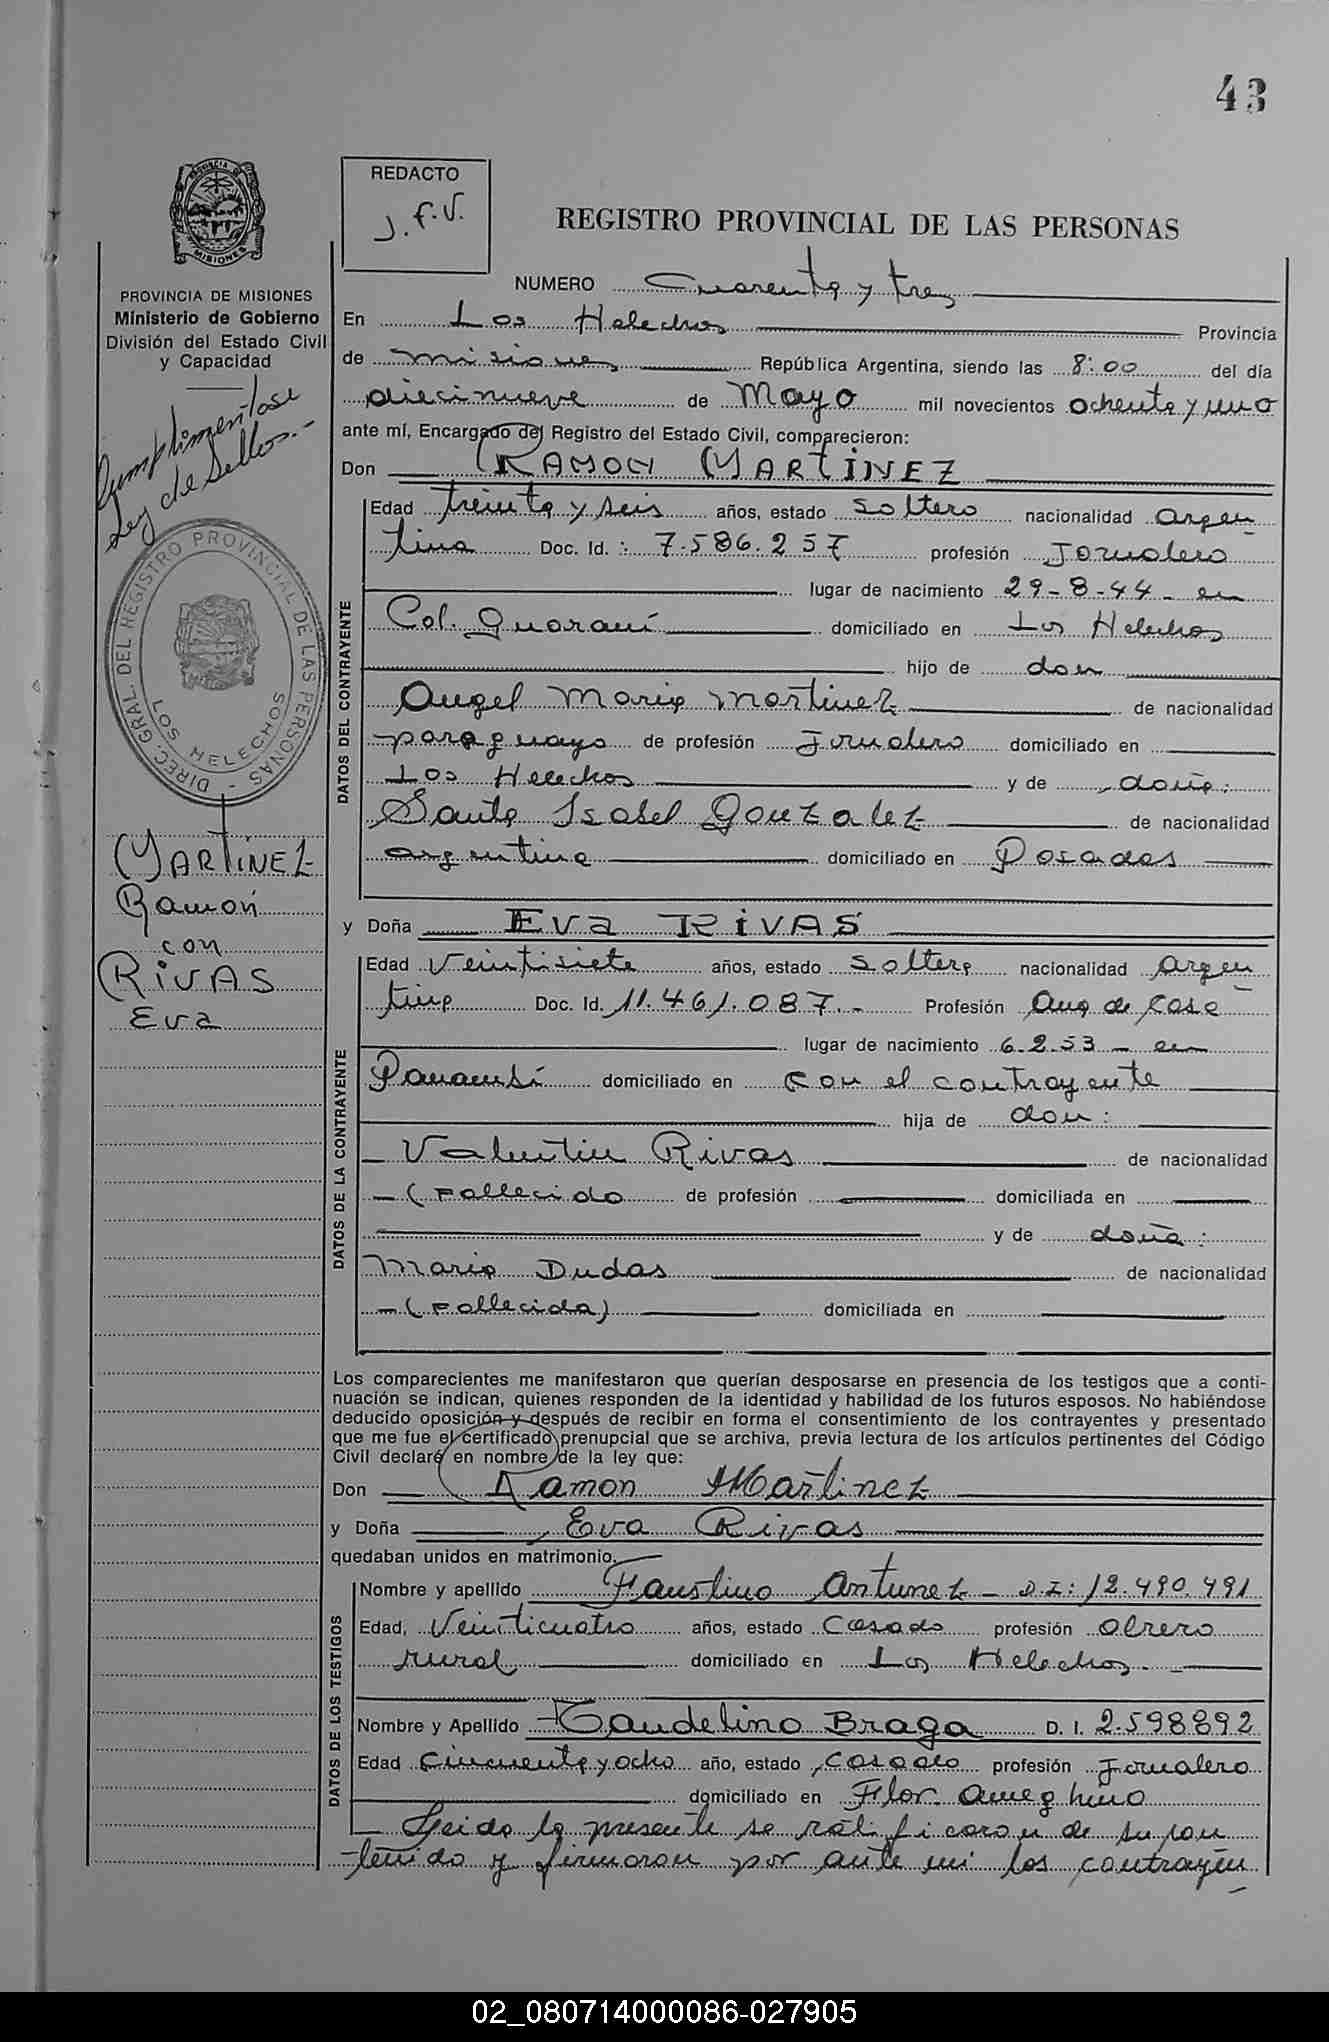 43
PROVINCIA DE MISIONES
Ministerio de Gobierno
División del Estado Civil
y Capacidad
Cumplimentose
Ley de Sellos.-
DIREC. GRAL. DEL REGISTRO PROVINCIAL DE LAS PERSONAS -
LOS HELECHOS
MARTINEZ
Ramón
con
RIVAS
Eva
REDACTO
J.F.V.
REGISTRO PROVINCIAL DE LAS PERSONAS
NUMERO Cuarenta y tres
En Los Helechos Provincia
de misiones República Argentina, siendo las 8:00 del día
diecinueve de Mayo mil novecientos ochenta y uno
ante mí, Encargado del Registro del Estado Civil, comparecieron:
Don RAMON MARTINEZ
DATOS DEL CONTRAYENTE
Edad treinta y seis años, estado soltero nacionalidad argen
tina Doc. Id. : 7.586.257 profesión Jornalero
lugar de nacimiento 29-8-44- en
Col. Guaraní domiciliado en Los Helechos
hijo de don
Angel Maria Martinez de nacionalidad
paraguayo de profesión Jornalero domiciliado en
Los Helechos y de doña:
Santa Isabel Gonzalez de nacionalidad
argentina domiciliado en Posadas
y Doña EVA RIVAS
DATOS DE LA CONTRAYENTE
Edad Veintisiete años, estado soltera nacionalidad argen
tina Doc. Id. 11.461.087.- Profesión Ama de casa
lugar de nacimiento 6-2-53 - en
Panambí domiciliado en con el contrayente
hija de don:
Valentin Rivas de nacionalidad
-(Fallecido de profesión domiciliada en
y de doña:
Maria Dudas de nacionalidad
-(Fallecida) domiciliada en
Los comparecientes me manifestaron que querían desposarse en presencia de los testigos que a conti-
nuación se indican, quienes responden de la identidad y habilidad de los futuros esposos. No habiéndose
deducido oposición y después de recibir en forma el consentimiento de los contrayentes y presentado
que me fue el certificado prenupcial que se archiva, previa lectura de los artículos pertinentes del Código
Civil declaré en nombre de la ley que:
Don Ramon Martinez
y Doña Eva Rivas
quedaban unidos en matrimonio.
DATOS DE LOS TESTIGOS
Nombre y apellido Faustino Antunez - D.I: 12.490.491
Edad, Veinticuatro años, estado Casado profesión Obrero
rural domiciliado en Los Helechos.
Nombre y Apellido Gaudelino Braga D. I. 2.598892
Edad Cincuenta y ocho año, estado Casado profesión Jornalero
domiciliado en Flor. Ameghino
Leida la presente se ratificaron de su con
tenido y firmaron por ante mi los contrayen
02_080714000086-027905